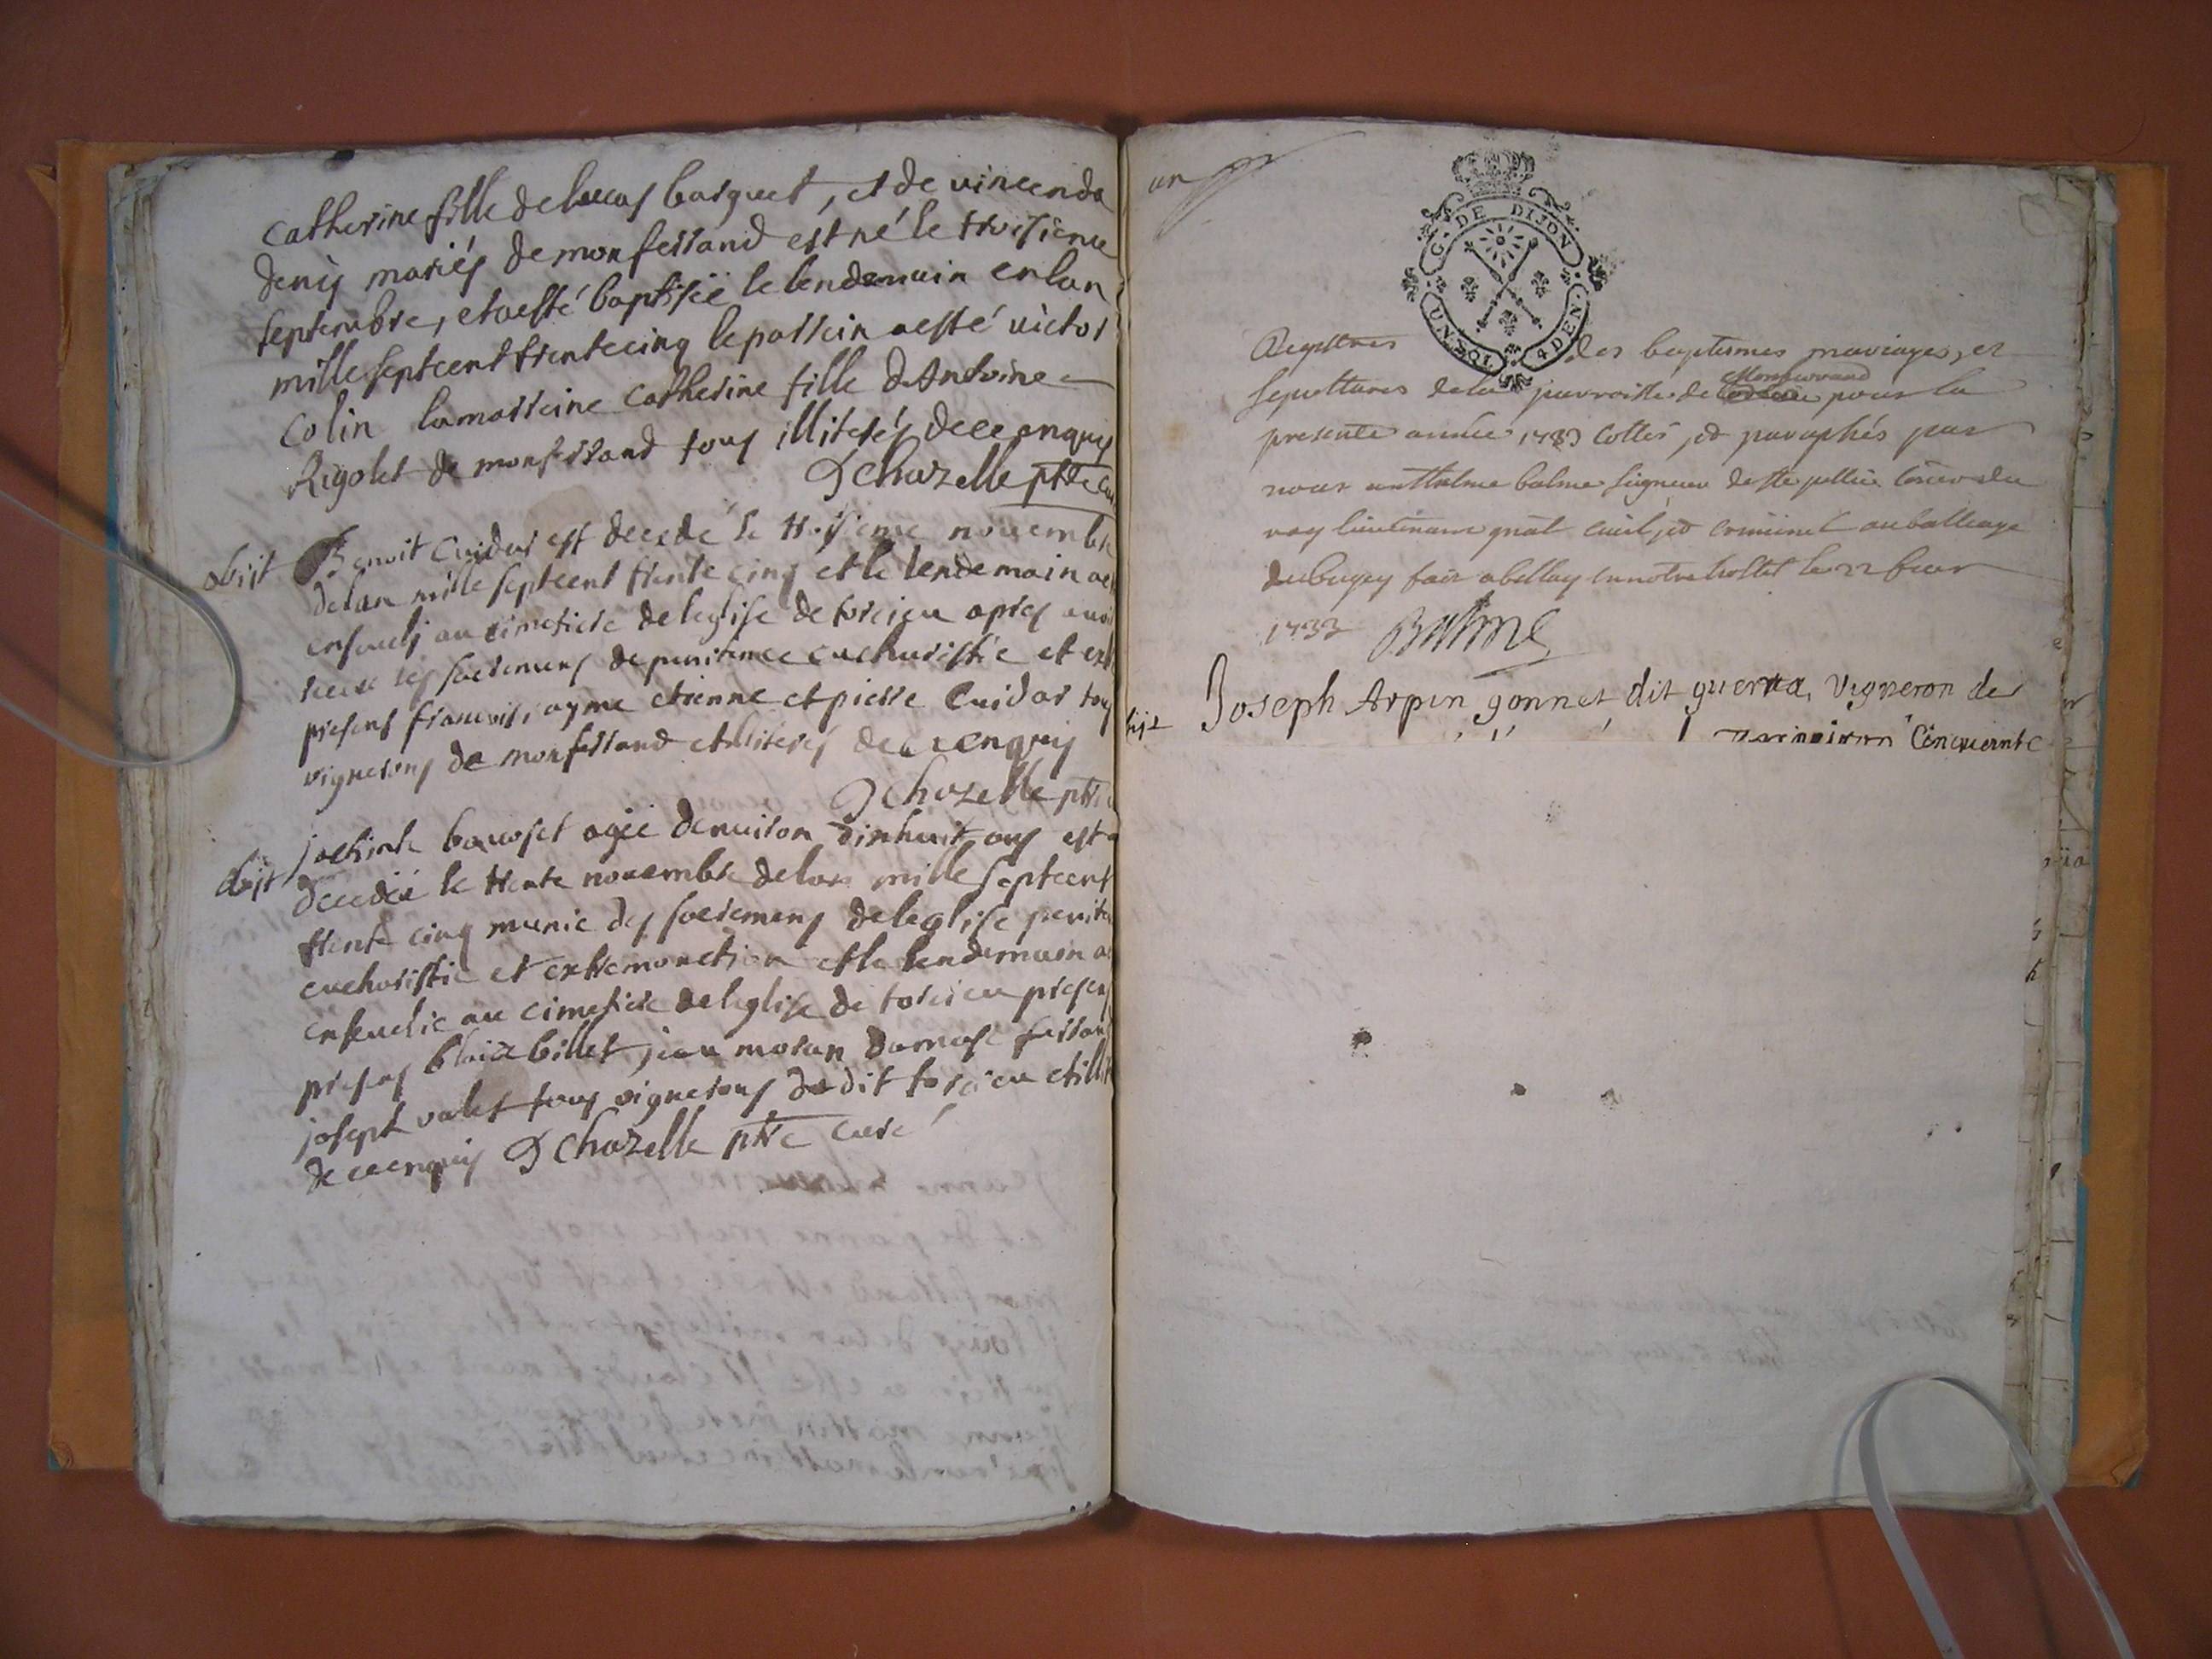 Catherine fille de lucas barquet, et de vincenda
denis mariés de monferrand est né le troisieme
septembre, et a esté baptisée le lendemain en lan
mille septcent trente cinq le parrein a esté victor
Colin la marreine Catherine fille d'Antoine
Rigolet de monferrand tous illiterés de ce enquis
D Chazelle ptre
obiit Benoit Cuidar est decedé le troisieme novembre
de lan mille septcent trente cinq et le lendemain
enseveli au cimetiere de leglise de torcieu apres
receu les sacremens de penitence euchuristie et
presens francois, ayme etienne et pierre Cuidar
vignerons de monferrand et illiterés de ce enquis
D Chazelle ptre
obiit agée denviron dixhuit ans est
decedée le trente novembre de lan mille septcent
trente cinq munie des sacremens de leglise
eucharistie et extremonction et le lendemain
ensevelie au cimetiere de leglise de torcieu presens
presens blaise billet, jean moran
josept valet tous vignerons du dit torcieu et
de ce enquis D Chazelle ptre curé
un
G. DE DIJON
UN SOL 4 DEN.
Registres des baptesmes mariages, et
sepultures de la parroisse de Monferrand pour la
presente année 1733 Cottés, et paraphés par
nous anthelme balme seigneur de ste jullie Coner du
roy lieutenant gnal civil, et criminel au balliage
du bugey fait a bellay en notre hostel le 22
1733 Balme
Joseph Arpin gonnet dit guerra, Vigneron de
Cinquante